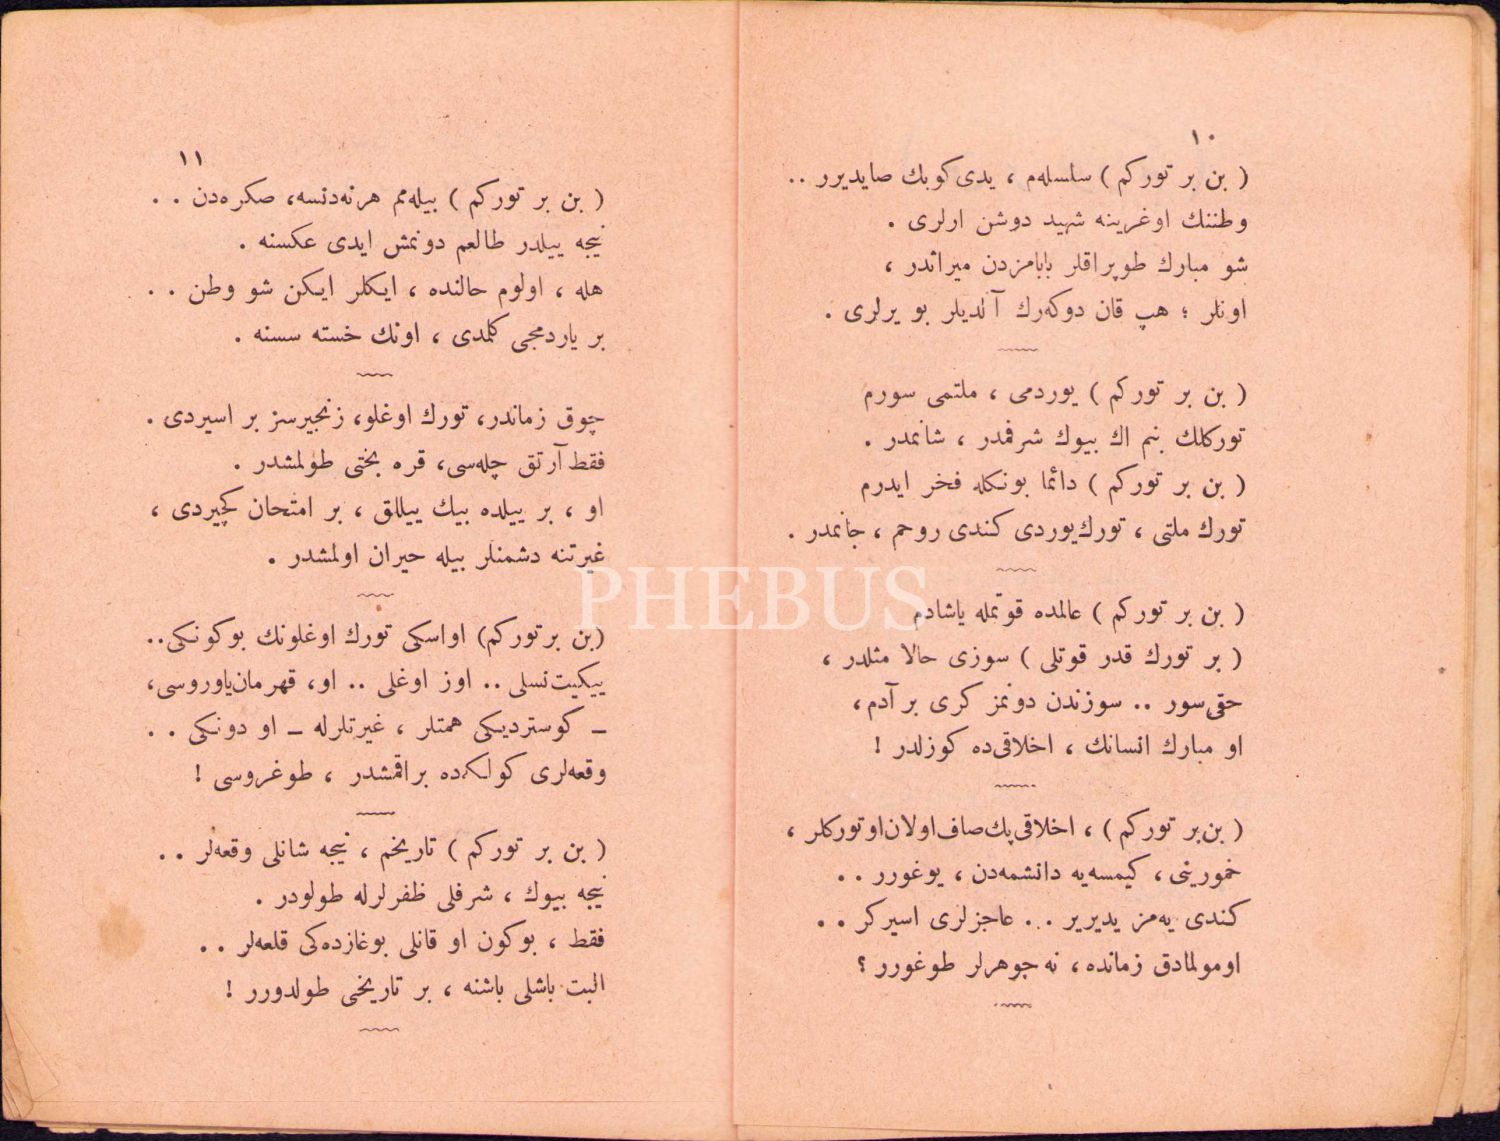 ١٠
( بن بر تورکم ) سلسله‌م ، یدی کوبك صایدیرر ..
وطننك اوغرینه شهید دوشن ارلری .
شو مبارك طوپراقلر بابامزدن میراثدر ،
اونلر ؛ هپ قان دوکه‌رك آلدیلر بو یرلری .
( بن بر تورکم ) یوردمی ، ملتمی سورم
تورکلك بنم اك بیوك شرفمدر ، شانمدر .
( بن بر تورکم ) دائما بونکله فخر ایدرم
تورك ملتی ، تورك یوردی کندی روحم ، جانمدر .
( بن بر تورکم ) عالمده قوتمله یاشادم
( بر تورك قدر قوتلی ) سوزی حالا مثلدر ،
حقی سور .. سوزندن دونمز کری بر آدم ،
او مبارك انسانك ، اخلاقی ده کوزلدر !
( بن بر تورکم ) ، اخلاقی پك صاف اولان او تورکلر ،
خمورینی ، کیمسه‌یه دانشمه‌دن ، یوغورر ..
کندی یه‌مز یدیریر ... عاجزلری اسیرکر ..
اومولمادق زمانده ، نه جوهرلر طوغورر ؟
١١
( بن بر تورکم ) بیله‌مم هر نه‌دنسه، صکره‌دن ..
نیجه ییلدر طالعم دونمش ایدی عکسنه .
هله ، اولوم حالنده ، ایکلر ایکن شو وطن ..
بر یاردمجی کلمدی ، اونك خسته سسنه .
چوق زماندر، تورك اوغلو، زنجیرسز بر اسیردی .
فقط آرتق چله‌سی، قره بختی طولمشدر .
او ، بر ییلده بیك ییللق ، بر امتحان کچیردی ،
غیرتنه دشمنلر بیله حیران اولمشدر .
(بن بر تورکم) او اسکی تورك اوغلونك بوکونکی..
ییکیت نسلی .. اوز اوغلی .. او، قهرمان یاوروسی،
ـ کوستردیکی همتلر ، غیرتلرله ـ او دونکی ..
وقعه‌لری کولکه‌ده براقمشدر ، طوغروسی !
( بن بر تورکم ) تاریخم ، نیجه شانلی وقعه‌لر ..
نیجه بیوك ، شرفلی ظفرلرله طولودر .
فقط ، بوکون او قانلی بوغازده‌کی قلعه‌لر ..
البت باشلی باشنه ، بر تاریخی طولدورر !
PHEBUS